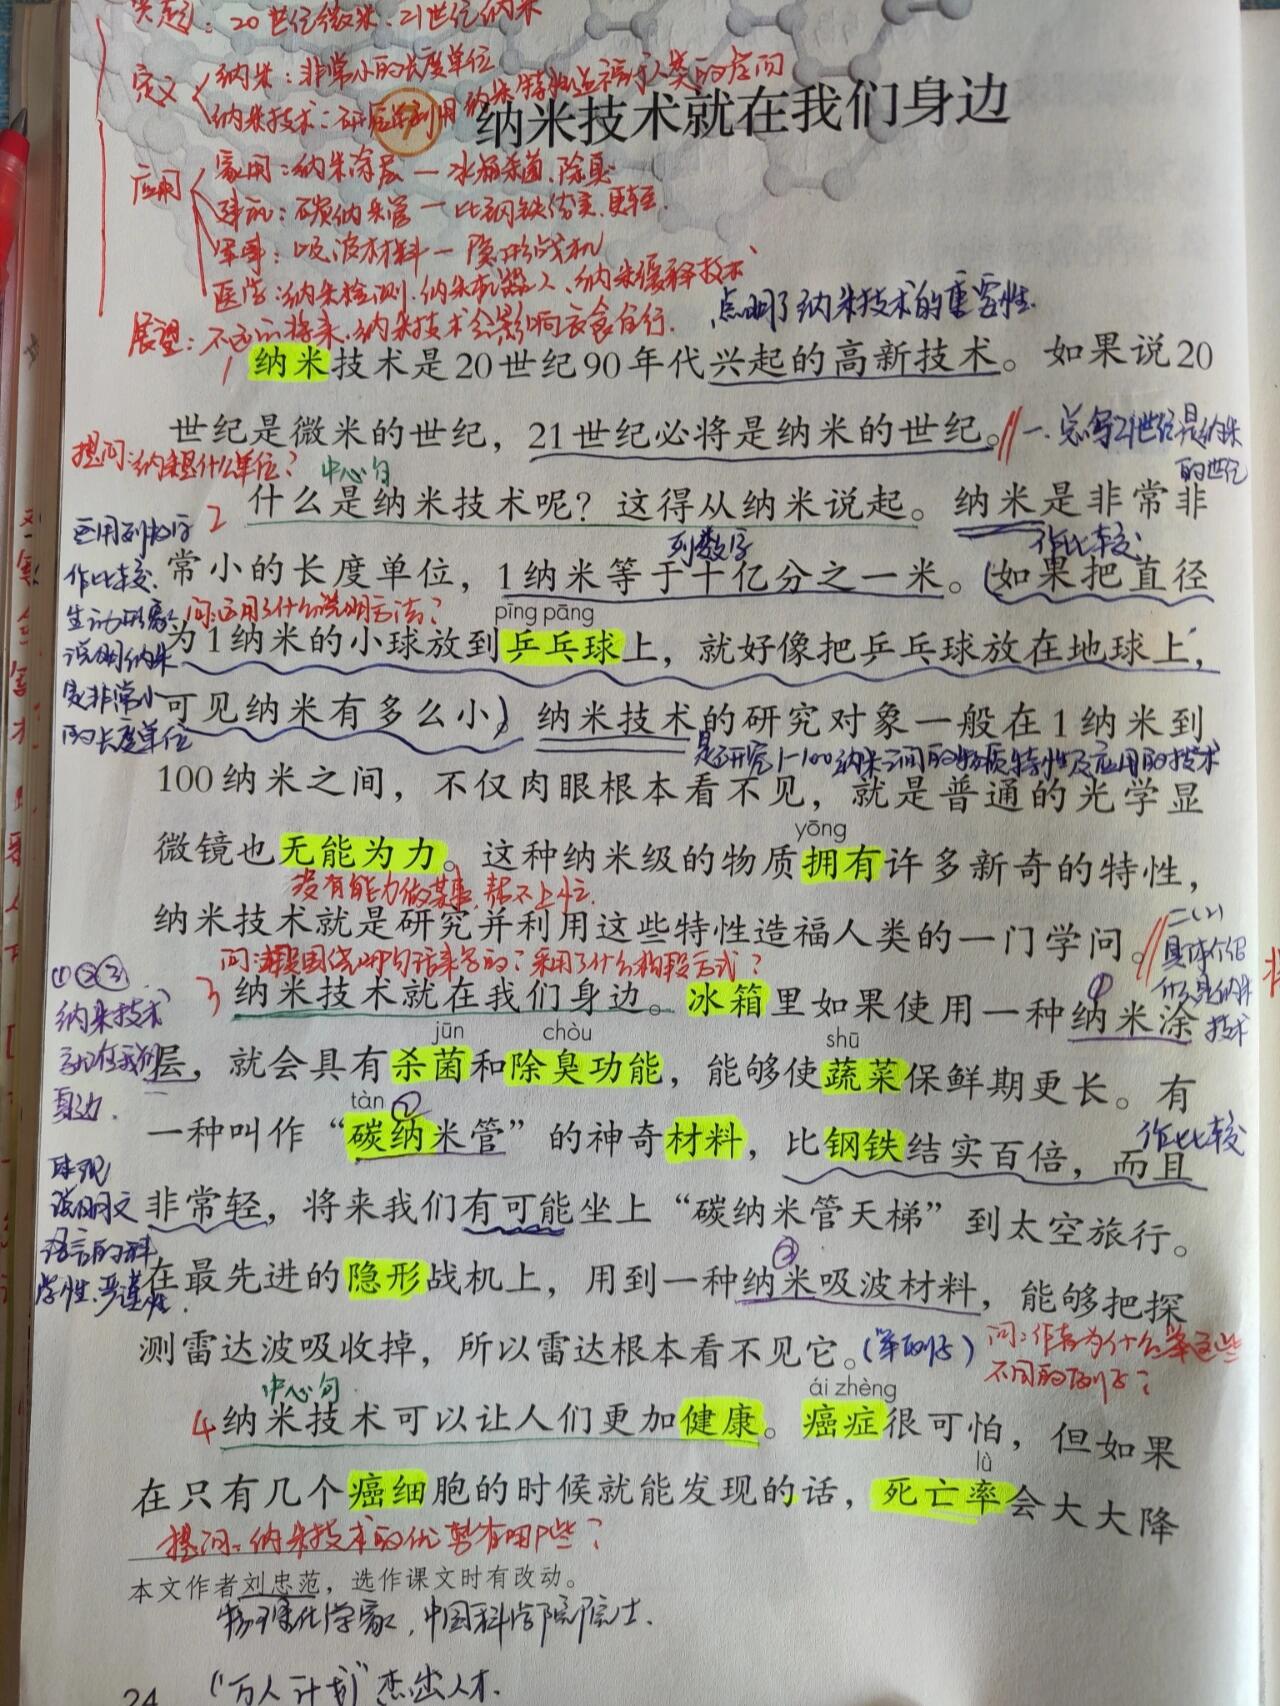 关键：20世纪微米、21世纪纳米
定义
纳米：非常小的长度单位
纳米技术：研究并利用纳米特性造福于人类的学问
纳米技术就在我们身边
应用
家用：纳米涂层—冰箱杀菌、除臭
建筑：碳纳米管—比钢铁结实、更轻
军事：吸波材料—隐形战机
医学：纳米检测、纳米机器人、纳米缓释技术
展望：不远的将来，纳米技术会影响衣食住行.
点明了纳米技术的重要性.
1 纳米技术是20世纪90年代兴起的高新技术。如果说20
世纪是微米的世纪，21世纪必将是纳米的世纪。
一.总写21世纪是纳米
的世纪
提问:纳米是什么单位？
中心句
2 什么是纳米技术呢？这得从纳米说起。纳米是非常非
列数字
作比较
常小的长度单位，1纳米等于十亿分之一米。(如果把直径
问:运用了什么说明方法？
pīng pāng
为1纳米的小球放到乒乓球上，就好像把乒乓球放在地球上，
可见纳米有多么小)纳米技术的研究对象一般在1纳米到
是研究1-100纳米之间的物质特性及应用的技术
运用列数字
作比较.
生动形象
说明纳米
是非常小
的长度单位
100纳米之间，不仅肉眼根本看不见，就是普通的光学显
yōng
微镜也无能为力。这种纳米级的物质拥有许多新奇的特性，
没有能力做某事，帮不上忙.
纳米技术就是研究并利用这些特性造福人类的一门学问。
二(2)
具体介绍
什么是纳米
技术
问:本段围绕哪句话来写的？采用了什么构段方式？
3 纳米技术就在我们身边。冰箱里如果使用一种纳米涂
①
jūn chòu shū
层，就会具有杀菌和除臭功能，能够使蔬菜保鲜期更长。有
tàn ②
一种叫作“碳纳米管”的神奇材料，比钢铁结实百倍，而且
作比较
非常轻，将来我们有可能坐上“碳纳米管天梯”到太空旅行。
③
在最先进的隐形战机上，用到一种纳米吸波材料，能够把探
测雷达波吸收掉，所以雷达根本看不见它。(举例子)
问:作者为什么举这些
不同的例子？
①②③
纳米技术
就在我们
身边.
体现
说明文
语言的科
学性、严谨性.
中心句
ái zhèng
4 纳米技术可以让人们更加健康。癌症很可怕，但如果
lǜ
在只有几个癌细胞的时候就能发现的话，死亡率会大大降
提问:纳米技术的优势有哪些？
本文作者刘忠范，选作课文时有改动。
物理化学家，中国科学院院士.
24
(“万人计划”杰出人才.